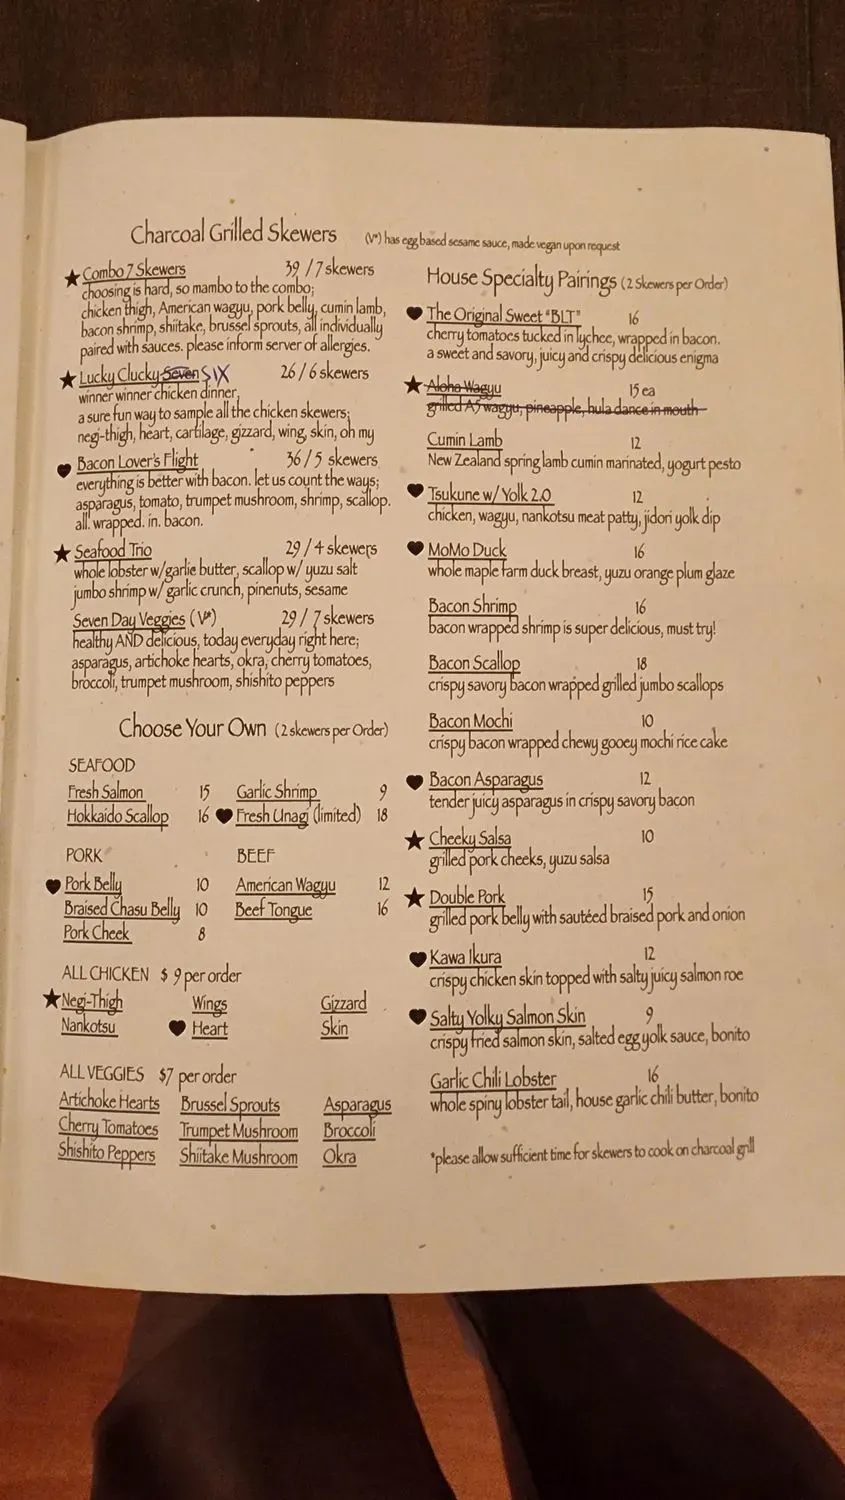 Charcoal Grilled Skewers (V*) has egg based sesame sauce, made vegan upon request
★ Combo 7 Skewers 39 / 7 skewers
choosing is hard, so mambo to the combo;
chicken thigh, American wagyu, pork belly, cumin lamb,
bacon shrimp, shiitake, brussel sprouts, all individually
paired with sauces. please inform server of allergies.
★ Lucky Clucky Seven SIX 26 / 6 skewers
winner winner chicken dinner,
a sure fun way to sample all the chicken skewers;
negi-thigh, heart, cartilage, gizzard, wing, skin, oh my
♥ Bacon Lover's Flight 36 / 5 skewers
everything is better with bacon. let us count the ways;
asparagus, tomato, trumpet mushroom, shrimp, scallop.
all. wrapped. in. bacon.
★ Seafood Trio 29 / 4 skewers
whole lobster w/garlic butter, scallop w/ yuzu salt
jumbo shrimp w/ garlic crunch, pinenuts, sesame
Seven Day Veggies (V*) 29 / 7 skewers
healthy AND delicious, today everyday right here;
asparagus, artichoke hearts, okra, cherry tomatoes,
broccoli, trumpet mushroom, shishito peppers
Choose Your Own (2 skewers per Order)
SEAFOOD
Fresh Salmon 15 Garlic Shrimp 9
Hokkaido Scallop 16 ♥ Fresh Unagi (limited) 18
PORK BEEF
♥ Pork Belly 10 American Wagyu 12
Braised Chasu Belly 10 Beef Tongue 16
Pork Cheek 8
ALL CHICKEN $ 9 per order
★ Negi-Thigh Wings Gizzard
Nankotsu ♥ Heart Skin
ALL VEGGIES $7 per order
Artichoke Hearts Brussel Sprouts Asparagus
Cherry Tomatoes Trumpet Mushroom Broccoli
Shishito Peppers Shiitake Mushroom Okra
House Specialty Pairings (2 Skewers per Order)
♥ The Original Sweet "BLT" 16
cherry tomatoes tucked in lychee, wrapped in bacon.
a sweet and savory, juicy and crispy delicious enigma
★ Aloha Wagyu 15 ea
grilled A5 wagyu, pineapple, hula dance in mouth
Cumin Lamb 12
New Zealand spring lamb cumin marinated, yogurt pesto
♥ Tsukune w/ Yolk 2.0 12
chicken, wagyu, nankotsu meat patty, jidori yolk dip
♥ MoMo Duck 16
whole maple farm duck breast, yuzu orange plum glaze
Bacon Shrimp 16
bacon wrapped shrimp is super delicious, must try!
Bacon Scallop 18
crispy savory bacon wrapped grilled jumbo scallops
Bacon Mochi 10
crispy bacon wrapped chewy gooey mochi rice cake
♥ Bacon Asparagus 12
tender juicy asparagus in crispy savory bacon
★ Cheeky Salsa 10
grilled pork cheeks, yuzu salsa
★ Double Pork 15
grilled pork belly with sautéed braised pork and onion
♥ Kawa Ikura 12
crispy chicken skin topped with salty juicy salmon roe
♥ Salty Yolky Salmon Skin 9
crispy fried salmon skin, salted egg yolk sauce, bonito
Garlic Chili Lobster 16
whole spiny lobster tail, house garlic chili butter, bonito
*please allow sufficient time for skewers to cook on charcoal grill